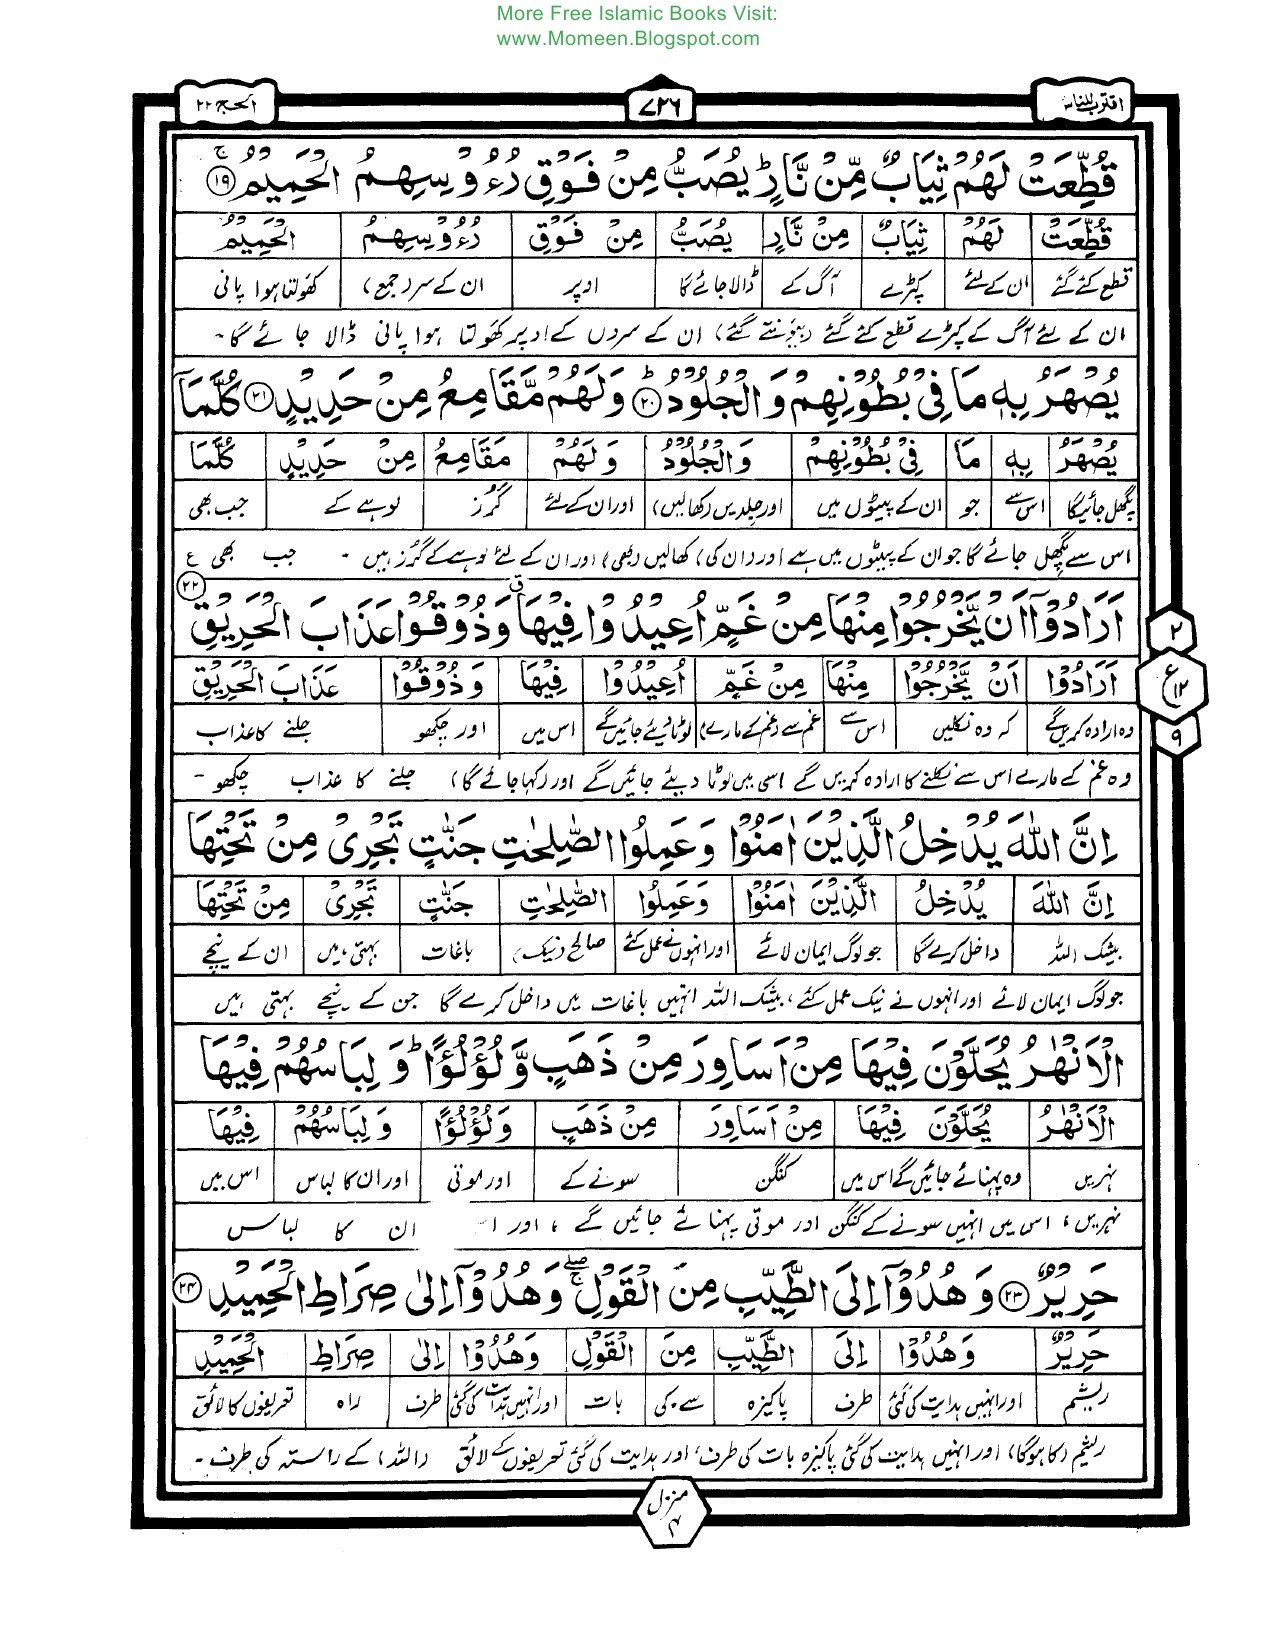 More Free Islamic Books Visit:
www.Momeen.Blogspot.com
اقترب للناس ۷۲۶ الحج ۲۲
قُطِّعَتْ لَهُمْ ثِيَابٌ مِّنْ نَّارٍ ؕ يُصَبُّ مِنْ فَوْقِ رُءُوْسِهِمُ الْحَمِيْمُ ۚ ﴿۱۹﴾
قُطِّعَتْ لَهُمْ ثِيَابٌ مِنْ نَّارٍ يُصَبُّ مِنْ فَوْقِ رُءُوْسِهِمُ الْحَمِيْمُ
قطع کئے گئے ان کے لئے کپڑے آگ کے ڈالا جائے گا اوپر ان کے سر (جمع) کھولتا ہوا پانی
ان کے لئے آگ کے کپڑے قطع کئے گئے (بیونتے گئے) ان کے سروں کے اوپر کھولتا ہوا پانی ڈالا جائے گا۔
يُصْهَرُ بِهٖ مَا فِيْ بُطُوْنِهِمْ وَالْجُلُوْدُ ؕ ﴿۲۰﴾ وَلَهُمْ مَّقَامِعُ مِنْ حَدِيْدٍ ﴿۲۱﴾ كُلَّمَآ
يُصْهَرُ بِهٖ مَا فِيْ بُطُوْنِهِمْ وَالْجُلُوْدُ وَلَهُمْ مَقَامِعُ مِنْ حَدِيْدٍ كُلَّمَا
پگھل جائیگا اس سے جو ان کے پیٹوں میں اور جلدیں (کھالیں) اور ان کے لئے گرز لوہے کے جب بھی
اس سے پگھل جائے گا جو ان کے پیٹوں میں ہے اور (ان کی) کھالیں (بھی) اور ان کے لئے لوہے کے گرز ہیں ۔ جب بھی
اَرَادُوْٓا اَنْ يَّخْرُجُوْا مِنْهَا مِنْ غَمٍّ اُعِيْدُوْا فِيْهَا ق وَذُوْقُوْا عَذَابَ الْحَرِيْقِ ع ﴿۲۲﴾
اَرَادُوْا اَنْ يَّخْرُجُوْا مِنْهَا مِنْ غَمٍّ اُعِيْدُوْا فِيْهَا وَذُوْقُوْا عَذَابَ الْحَرِيْقِ
وہ ارادہ کریں گے کہ وہ نکلیں اس سے غم سے (غم کے مارے) لوٹا دیئے جائیں گے اس میں اور چکھو جلنے کا عذاب
وہ غم کے مارے اس سے نکلنے کا ارادہ کریں گے اسی میں لوٹا دیئے جائیں گے اور (کہا جائے گا) جلنے کا عذاب چکھو ۔
۲
ع ۱۲
۹
اِنَّ اللّٰهَ يُدْخِلُ الَّذِيْنَ اٰمَنُوْا وَعَمِلُوا الصّٰلِحٰتِ جَنّٰتٍ تَجْرِيْ مِنْ تَحْتِهَا
اِنَّ اللّٰهَ يُدْخِلُ الَّذِيْنَ اٰمَنُوْا وَعَمِلُوا الصّٰلِحٰتِ جَنّٰتٍ تَجْرِيْ مِنْ تَحْتِهَا
بیشک اللہ داخل کرے گا جو لوگ ایمان لائے اور انہوں نے عمل کئے صالح (نیک) باغات بہتی ہیں ان کے نیچے
جو لوگ ایمان لائے اور انہوں نے نیک عمل کئے، بیشک اللہ انہیں باغات میں داخل کرے گا جن کے نیچے بہتی ہیں
الْاَنْهٰرُ يُحَلَّوْنَ فِيْهَا مِنْ اَسَاوِرَ مِنْ ذَهَبٍ وَّلُؤْلُؤًا ؕ وَلِبَاسُهُمْ فِيْهَا
الْاَنْهٰرُ يُحَلَّوْنَ فِيْهَا مِنْ اَسَاوِرَ مِنْ ذَهَبٍ وَلُؤْلُؤًا وَلِبَاسُهُمْ فِيْهَا
نہریں وہ پہنائے جائیں گے اس میں کنگن سونے کے اور موتی اور ان کا لباس اس میں
نہریں، اس میں انہیں سونے کے کنگن اور موتی پہنائے جائیں گے، اور ان کا لباس
حَرِيْرٌ ﴿۲۳﴾ وَهُدُوْٓا اِلَى الطَّيِّبِ مِنَ الْقَوْلِ ۖۚ وَهُدُوْٓا اِلٰى صِرَاطِ الْحَمِيْدِ ﴿۲۴﴾
حَرِيْرٌ وَهُدُوْا اِلَى الطَّيِّبِ مِنَ الْقَوْلِ وَهُدُوْا اِلٰى صِرَاطِ الْحَمِيْدِ
ریشم اور انہیں ہدایت کی گئی طرف پاکیزہ سے ۔ کی بات اور انہیں ہدایت کی گئی طرف راہ تعریفوں کا لائق
ریشم (کا ہوگا) اور انہیں ہدایت کی گئی پاکیزہ بات کی طرف، اور ہدایت کی گئی تعریفوں کے لائق (اللہ) کے راستہ کی طرف ۔
منزل ۴